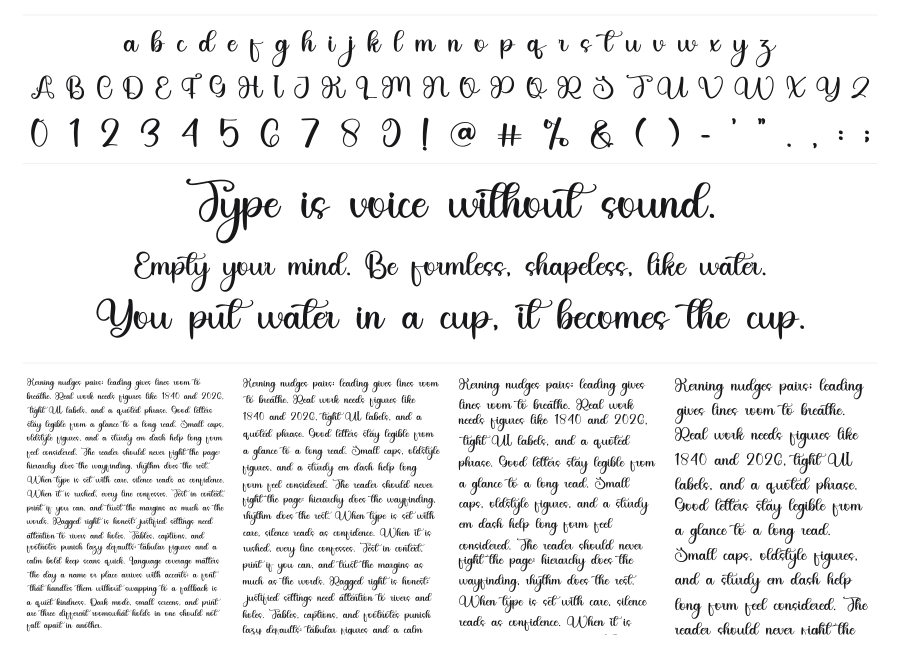 a b c d e f g h i j k l m n o p q r s t u v w x y z
A B C D E F G H I J K L M N O P Q R S T U V W X Y Z
0 1 2 3 4 5 6 7 8 9 ! @ # % & ( ) - ' " . , : ;
Type is voice without sound.
Empty your mind. Be formless, shapeless, like water.
You put water in a cup, it becomes the cup.
Kerning nudges pairs; leading gives lines room to
breathe. Real work needs figures like 1840 and 2026,
tight UI labels, and a quoted phrase. Good letters
stay legible from a glance to a long read. Small caps,
oldstyle figures, and a sturdy em dash help long form
feel considered. The reader should never fight the page:
hierarchy does the wayfinding, rhythm does the rest.
When type is set with care, silence reads as confidence.
When it is rushed, every line confesses. Test in context,
print if you can, and trust the margins as much as the
words. Ragged right is honest; justified settings need
attention to rivers and holes. Tables, captions, and
footnotes punish lazy defaults; tabular figures and a
calm bold keep scans quick. Language coverage matters
the day a name or place arrives with accents; a font
that handles them without swapping to a fallback is
a quiet kindness. Dark mode, small screens, and print
are three different worlds; what holds in one should not
fall apart in another.
Kerning nudges pairs; leading gives lines room
to breathe. Real work needs figures like
1840 and 2026, tight UI labels, and a
quoted phrase. Good letters stay legible from
a glance to a long read. Small caps, oldstyle
figures, and a sturdy em dash help long
form feel considered. The reader should never
fight the page: hierarchy does the wayfinding,
rhythm does the rest. When type is set with
care, silence reads as confidence. When it is
rushed, every line confesses. Test in context,
print if you can, and trust the margins as
much as the words. Ragged right is honest;
justified settings need attention to rivers and
holes. Tables, captions, and footnotes punish
lazy defaults; tabular figures and a calm
Kerning nudges pairs; leading gives
lines room to breathe. Real work
needs figures like 1840 and 2026,
tight UI labels, and a quoted
phrase. Good letters stay legible from
a glance to a long read. Small
caps, oldstyle figures, and a sturdy
em dash help long form feel
considered. The reader should never
fight the page: hierarchy does the
wayfinding, rhythm does the rest.
When type is set with care, silence
reads as confidence. When it is
Kerning nudges pairs; leading
gives lines room to breathe.
Real work needs figures like
1840 and 2026, tight UI
labels, and a quoted phrase.
Good letters stay legible from
a glance to a long read.
Small caps, oldstyle figures,
and a sturdy em dash help
long form feel considered. The
reader should never fight the